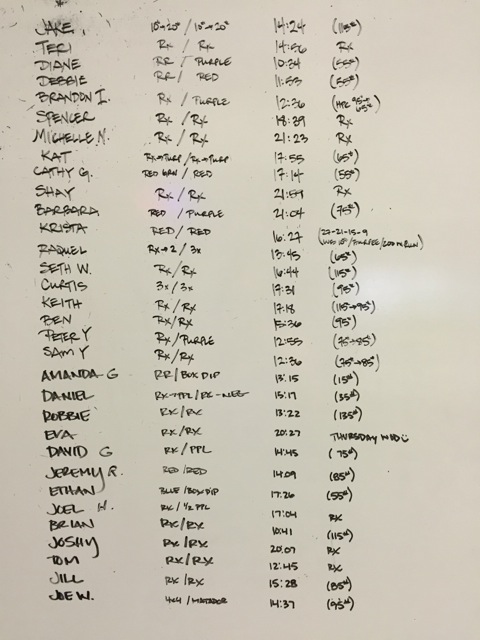 JAKE 10"→20" / 10"→20" 14:24 (115#)
TERI RX / RX 14:56 RX
DIANE RR / PURPLE 10:34 (55#)
DEBBIE RR / RED 11:53 (55#)
BRANDON I. RX / PURPLE 12:36
SPENCER RX / RX 18:39 RX
MICHELLE N. RX / RX 21:23 RX
KAT RX→PURP / RX→PURP 17:55 (65#)
CATHY G. RED GRN / RED 17:14 (55#)
SHAY RX / RX 21:59 RX
BARBARA RED / PURPLE 21:04 (75#)
KRISTA RED / RED 16:27 (27-21-15-9
RAQUEL RX→2 / 3X 13:45 (65#)
SETH W. RX / RX 16:44 (115#)
CURTIS 3X / 3X 17:31 (95#)
KEITH RX / RX 17:18 (115#→95#)
BEN RX / RX 15:36 (95#)
PETER Y RX / PURPLE 12:55 (75→85#)
SAM Y RX / RX 12:36 (75→85#)
AMANDA G RR / BOX DIP 13:15 (15#)
DANIEL RX→PPL / RX→NEG 15:17 (35#)
ROBBIE RX / RX 13:22 (135#)
EVA RX / RX 20:27 THURSDAY
DAVID G RX / PPL 14:45 (75#)
JEREMY R. RED / RED 14:09 (85#)
ETHAN BLUE / BOX DIP 17:26 (55#)
JOEL H. RX / 1/2 PPL 17:04 RX
BRIAN RX / RX 10:41 (115#)
JOSHY RX / RX 20:07 RX
TOM RX / RX 12:45 RX
JILL RX / RX 15:28 (85#)
JOE W. 4X4 / MATADOR 14:37 (95#)